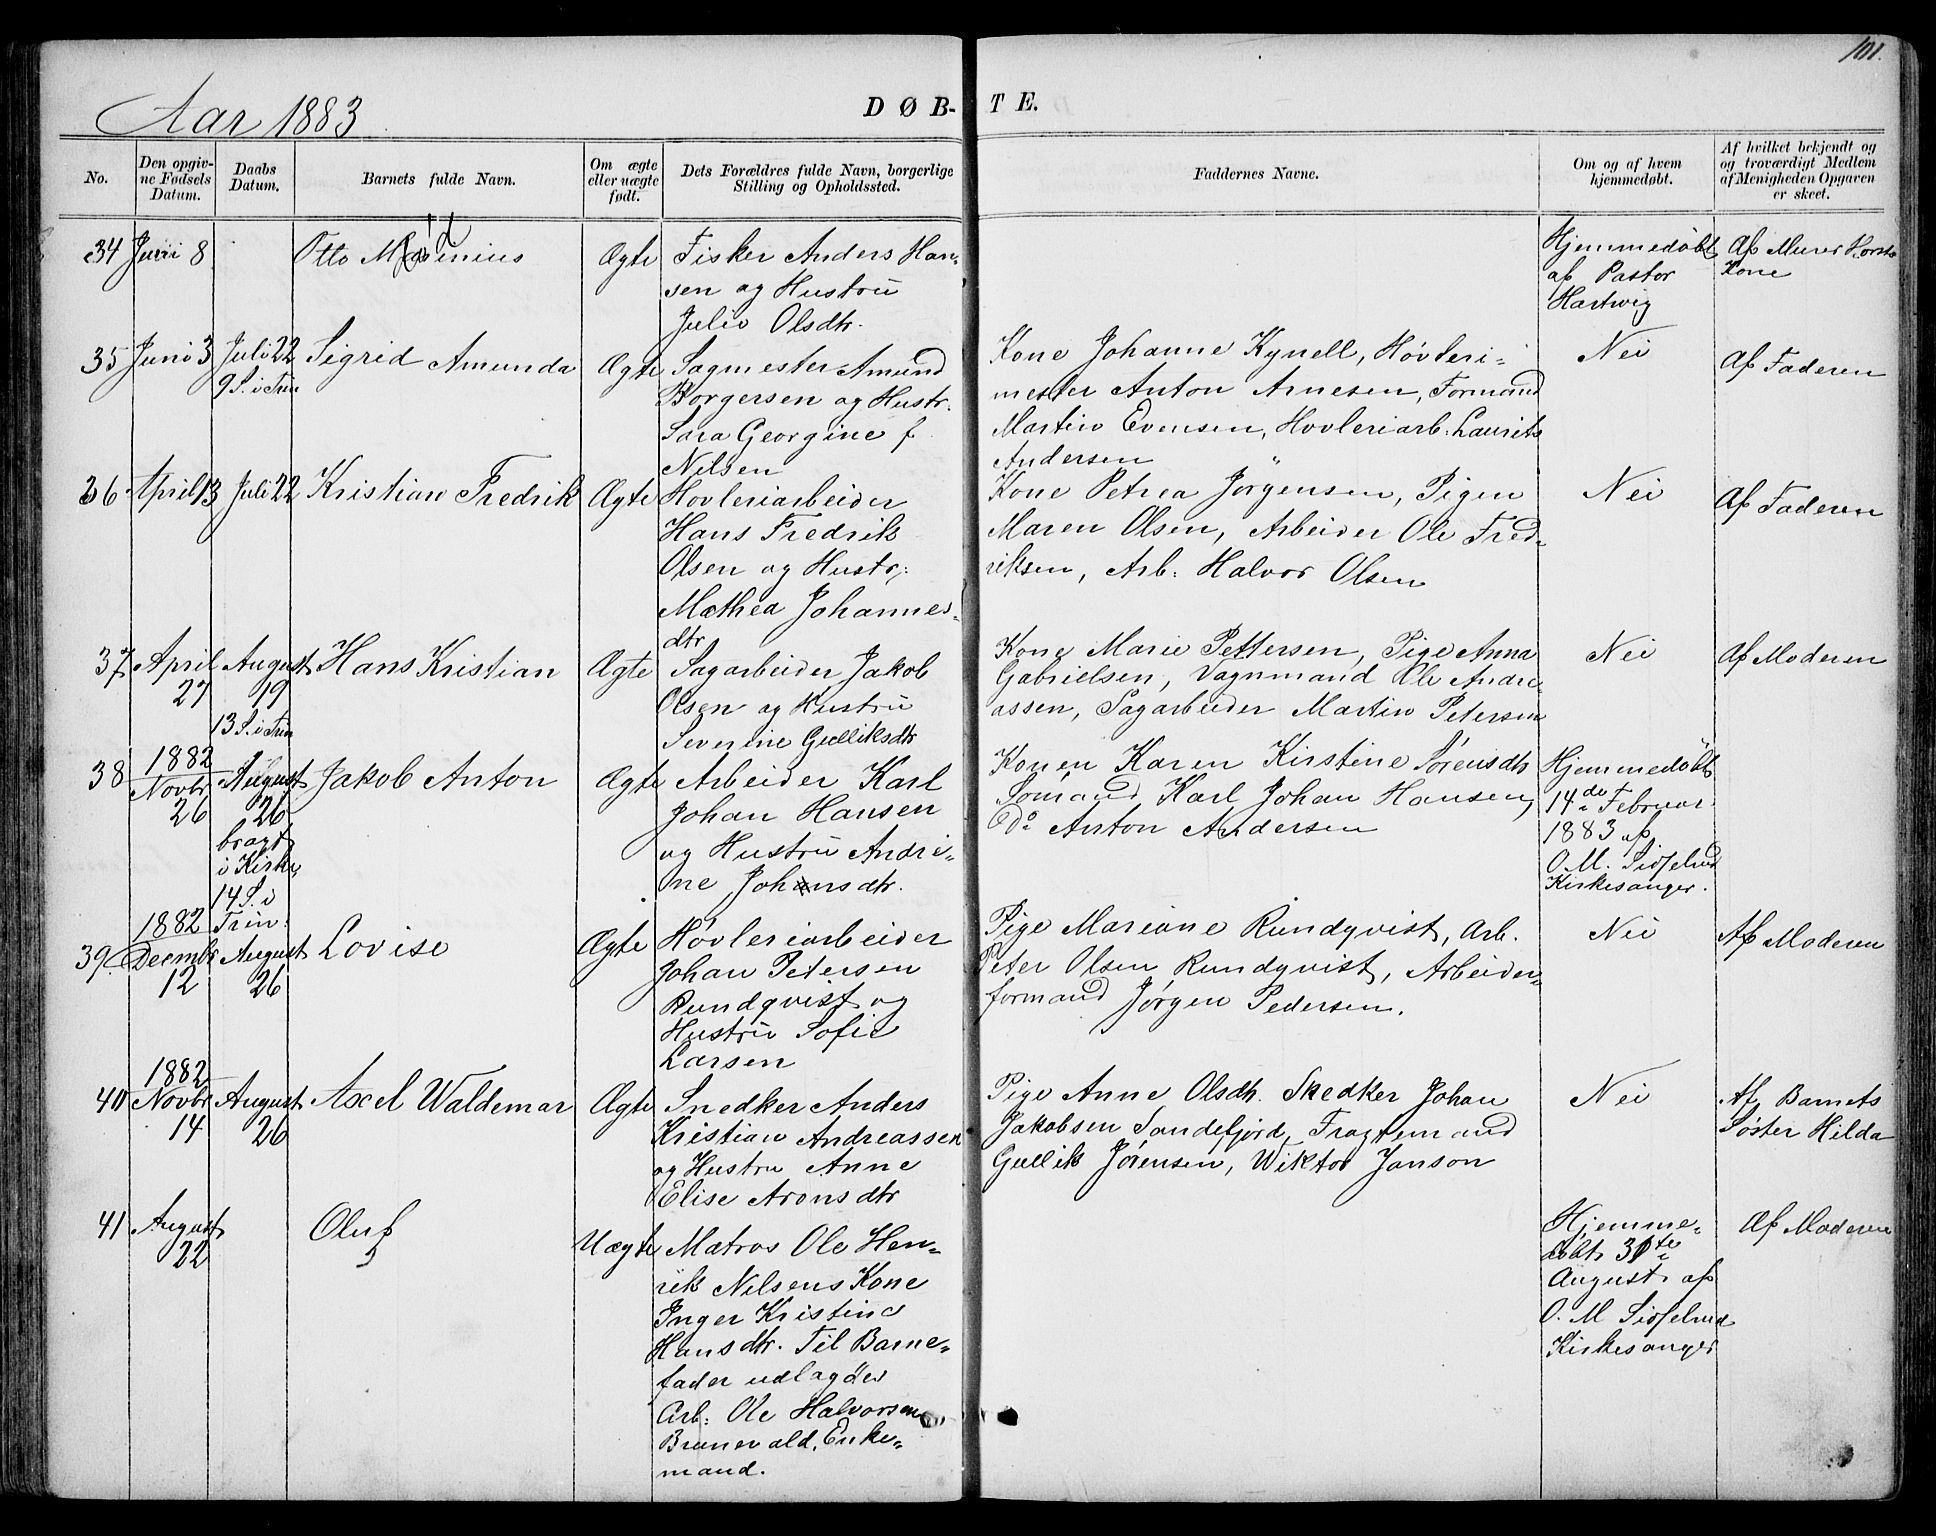 101.
Aar 1883
DØB-
TE.
No.
Den opgiv-
ne Fødsels
Datum.
Daabs
Datum.
Barnets fulde Navn.
Om ægte
eller uægte
født.
Dets Forældres fulde Navn, borgerlige
Stilling og Opholdssted.
Faddernes Navne.
Om og af hvem
hjemmedøbt.
Af hvilket bekjendt og
og troværdigt Medlem
af Menigheden Opgaven
er skeet.
34
Juni 8
Otto
Ægte
Fisker Anders Han-
sen og Hustru
Julie Olsdtr.
Hjemmedøbt
af Pastor
Hartwig
Af Murer
Kone
35
Juni 3
Juli 22
9 S. i Trin
Sigrid Amunda
Ægte
Sagmester Amund
Borgersen og Hustr.
Sara Georgine f.
Nilsen
Kone Johanne Kynell, Høvleri-
mester Anton Arnesen, Formand
Martin Evensen, Hovleriarb. Laurits
Andersen
Nei
Af Faderen
36
April 13
Juli 22
Kristian Fredrik
Ægte
Hovleriarbeider
Hans Fredrik
Olsen og Hustr:
Mathea Johannes-
dtr
Kone Petrea Jörgensen, Pigen
Maren Olsen, Arbeider Ole Fred-
riksen, Arb: Halvor Olsen
Nei
Af Faderen
37
April
27
August
19
13 S. i Trin
Hans Kristian
Ægte
Sagarbeider Jakob
Olsen og Hustru
Severine Gulliksdtr
Kone Marie Pettersen, Pige Anna
Gabrielsen, Vognmand Ole Andre-
assen, Sagarbeider Martin Petersen
Nei
Af Moderen
38
1882
Novbr
26
August
26
bragt
i Kirke
14 S. i
Trin:
Jakob Anton
Ægte
Arbeider Karl
Johan Hansen
og Hustru Andri-
ne Johansdtr.
Konen Karen Kirstine Sørensdtr
Sømand Karl Johan Hansen,
Do Anton Andersen
Hjemmedøbt
14de Februar
1883 af
O. M. Sisselrud
Kirkesanger.
39
1882
Decmbr
12
August
26
Lovise
Ægte
Høvleriarbeider
Johan Petersen
Rundqvist og
Hustru Sofie
Larsen
Pige Mariane Rundqvist, Arb.
Peter Olsen Rundqvist, Arbeider-
formand Jørgen Pedersen.
Nei
Af Moderen
40
1882
Novbr
14
August
26
Axel Waldemar
Ægte
Snedker Anders
Kristian Andreassen
og Hustru Anne
Elise Aronsdtr
Pige Anne Olsdtr. Skedker Johan
Jakobsen Sandefjord, Fragtemand
Gullik Jørensen, Wiktor Janson
Nei
Af Barnets
Søster Hilda
41
August
22
Oluf
Uægte
Matros Ole Hen-
rik Nilsens Kone
Inger Kristine
Hansdtr. Til Barne-
fader udlagdes
Arb: Ole Halvorsen
Brunevald, Enke-
mand.
Hjemme-
døbt 31te
August af
O. M Sisselrud
Kirkesanger
Af Moderen